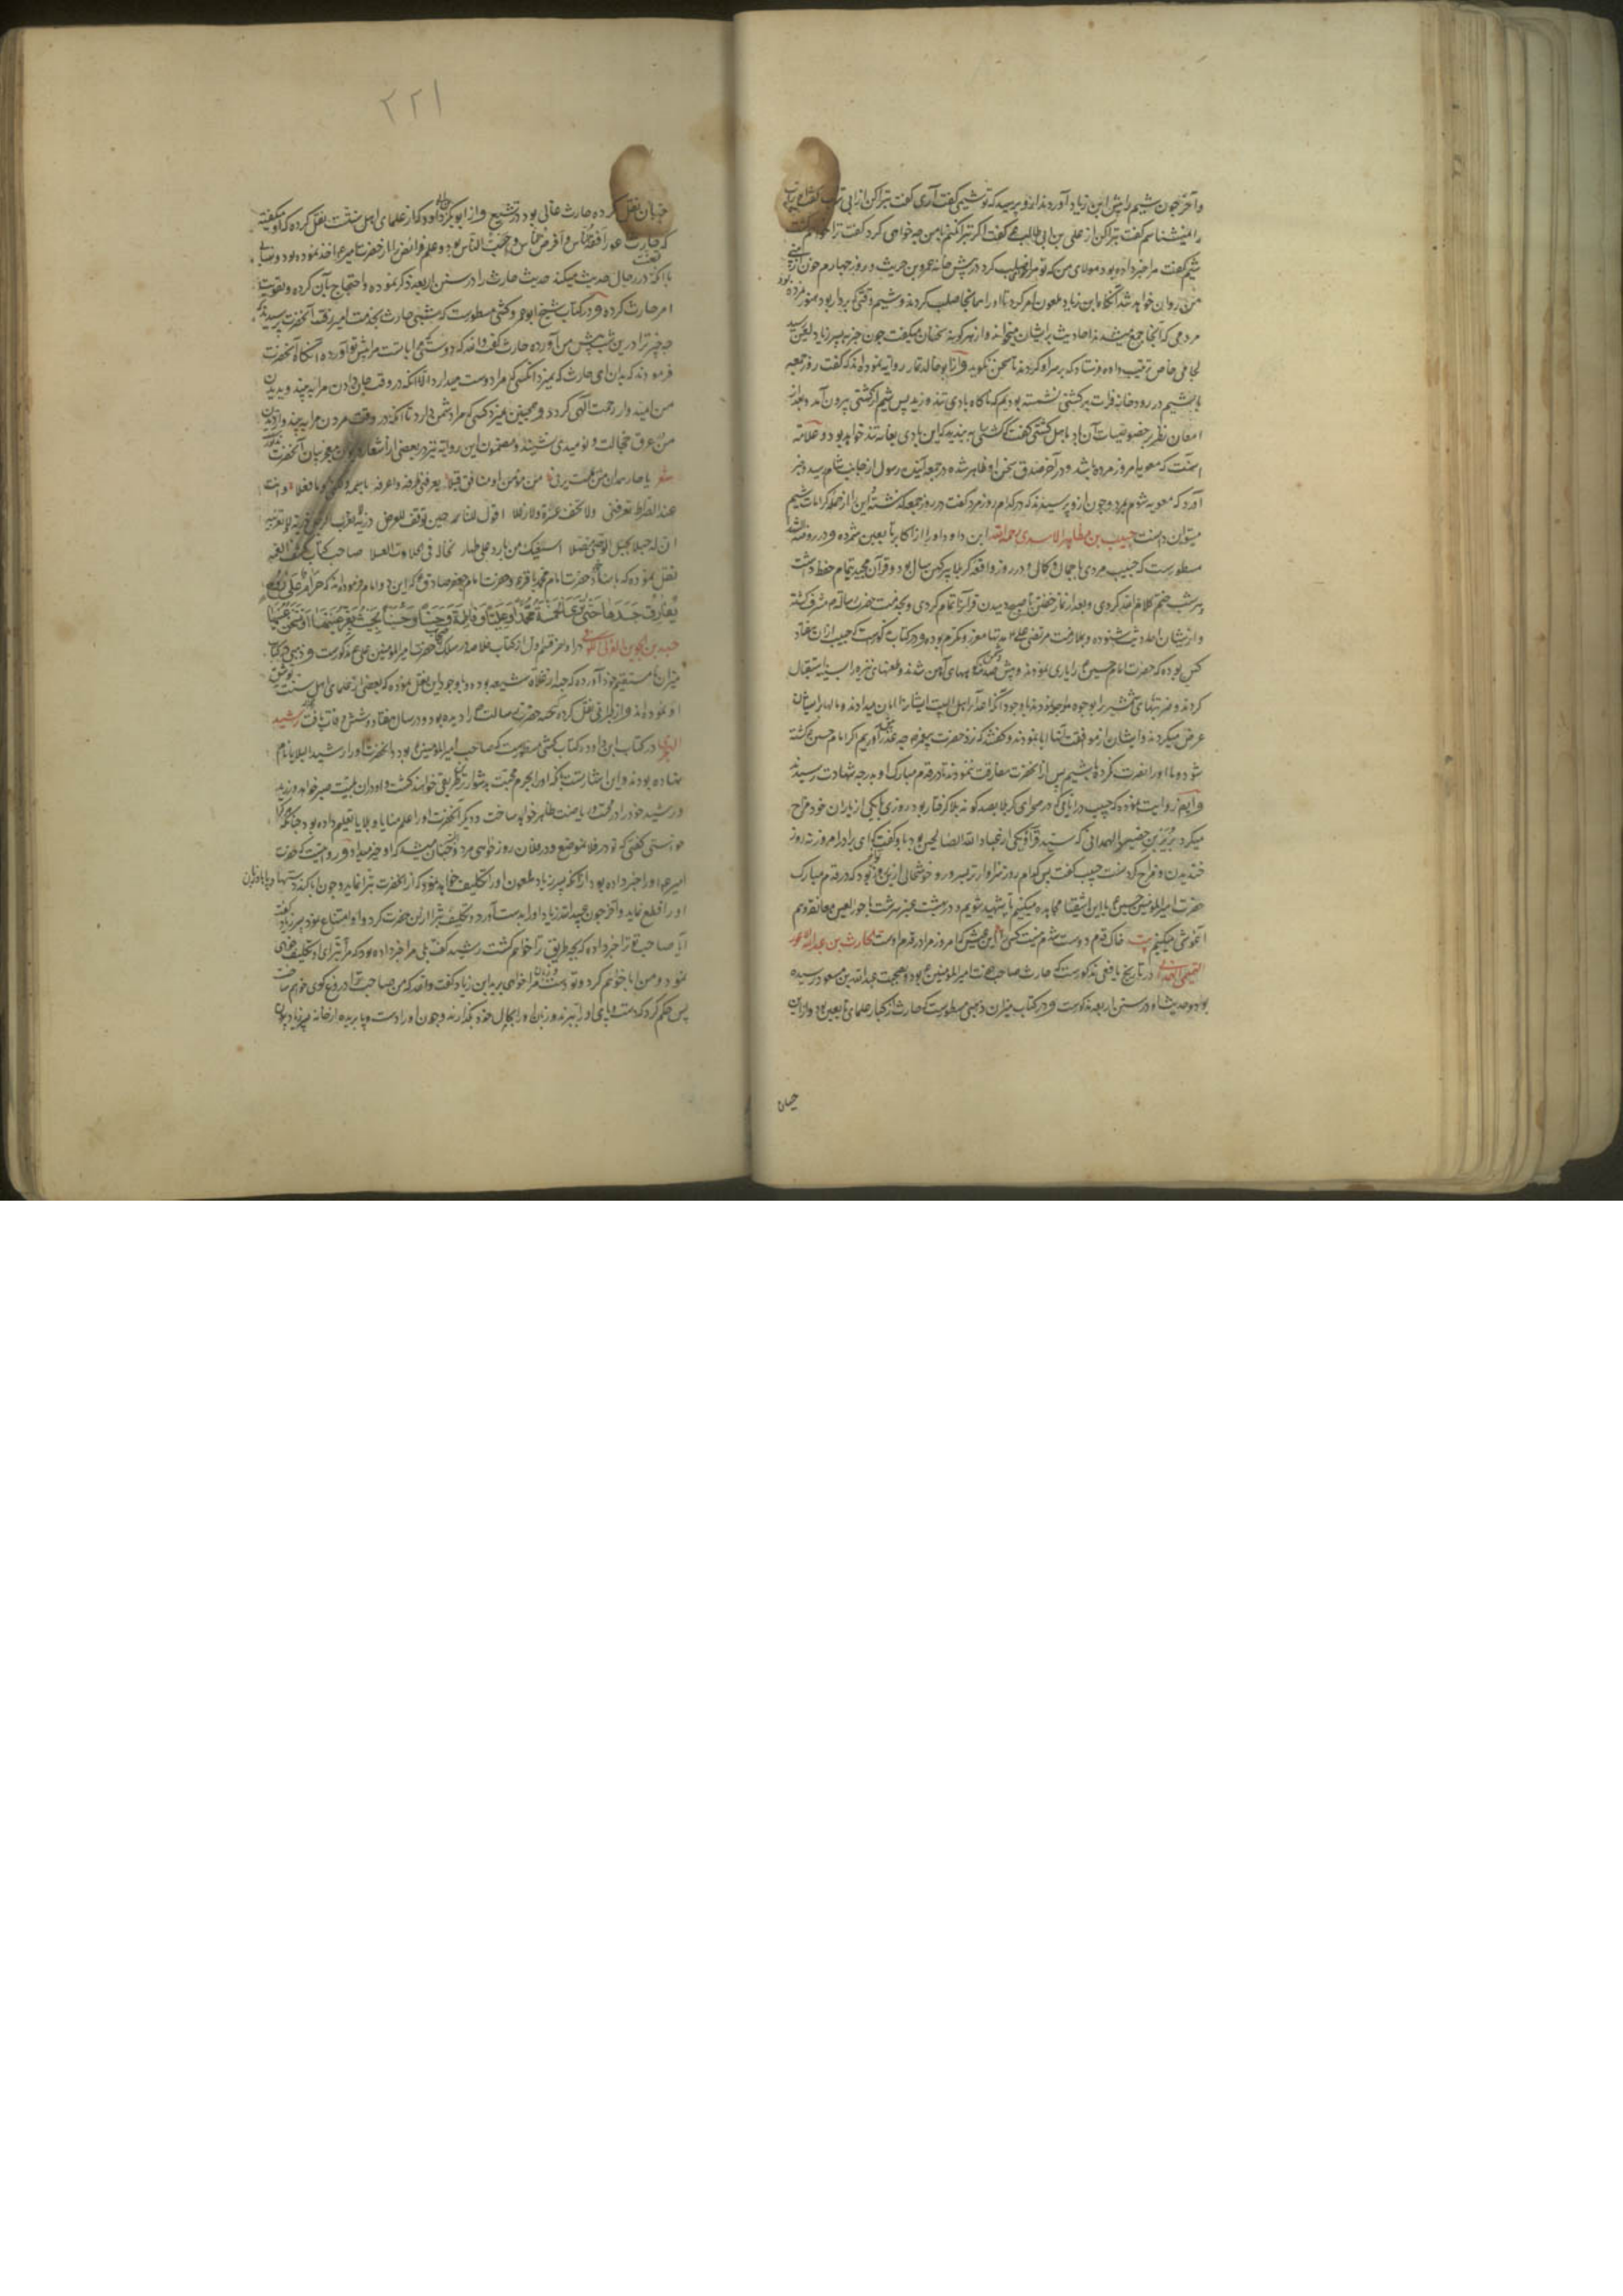 و آخر چون میثم را پیش ابن زیاد آوردند از او پرسید که تو میثمی گفت آری گفت تبرا کن از ابی تراب گفت
را نمیشناسم گفت تبرا کن از علی بن ابی طالب گفت اگر تبرا نکنم با من چه خواهی کرد گفت ترا خواهم کشت
میثم گفت مرا خبر داده بود مولای من که تو مرا صلب کرد در پیش خانه عمرو بن حریث و روز چهارم خون از
من روان خواهد شد آنگاه ابن زیاد ملعون امر کرد تا او را همانجا صلب کردند و میثم وقتی که بردار بود
مردمی که آنجا جمع میشدند احادیث بر ایشان میخواند و از هر گونه سخنان میگفت چون خبر به پسر زیاد لعین رسید
لجامی خاص ترتیب داده فرستاد که بر سر او کردند تا سخن نگوید و از ابو خالد تمار روایه نموده اند که گفت روز جمعه
با میثم در رودخانه فرات بر کشتی نشسته بودیم که ناگاه بادی تند وزید پس میثم از کشتی بیرون آمد و بعد از
امعان نظر بر خصوصیات آن باد باهل کشتی گفت که کشتی را به بندید که این بادی بغایت تند خواهد بود و علامه
آنست که معویه امروز مرده باشد و در آخر صدق سخن او ظاهر شده در جمعه آینده رسول از جانب شام رسید و خبر
آورد که معویه شوم مرد و چون از و پرسیدند که در کدام روز مرد گفت در روز جمعه گذشته و این را از جمله کرامات میثم
میتوان دانست حبیب بن مظاهر الاسدی رحمه الله ابن داود او را از اکابر تابعین شمرده و در روضة الشهدا
مسطورست که حبیب مردی با جمال و کمال و در روز واقعه کربلا پیر کهن سال بود و قرآن مجید تمام حفظ داشت
هر شب ختم کلام الله کردی و بعد از نماز خفتن تا صبح دمیدن قرآن را تمام کردی و بخدمت حضرت رسالت مشرف گشته
و از ایشان احادیث شنوده و بملازمت مرتضی علی معزز و مکرم بوده و در کتاب کشی است که حبیب از آن هفتاد
کس بوده که حضرت امام حسین را یاری نمودند و پیش کوههای آهن شدند و طعنهای نیزه را بسینه استقبال
کردند و ضربتهای شمشیر را بوجوه خود
عرض میکردند و ایشان از موافقت آنها ابا نمودند و گفتند که نزد حضرت پیغمبر چه عذر آوریم اگر امام حسین کشته
شود و ما او را نصرت نکرده باشیم پس از آنحضرت مفارقت ننمودند تا در قدم مبارک او بدرجه شهادت رسیدند
و ایضا روایت نموده که حبیب در ایامی که در صحرای کربلا بصد گونه بلا گرفتار بود روزی با یکی از یاران خود مزاح
میکرد بریر بن خضیر الهمدانی که سید قرا و یکی از عباد الله الصالحین بود با او گفت که ای برادر امروز نه روز
خندیدن و مزاح کردنست حبیب گفت پس کدام روز سزاوارتر بسرور و خوشحالی ازین روز بود که در قدم مبارک
حضرت امیر المومنین حسین با این اشقیا مجاهده میکنیم تا شهید شویم و در بهشت عنبر سرشت با حور العین معانقه و هم
آغوشی میکنیم بیت خاک قدم دوست شدم نیست کسی را این عیش که امروز مرا در قدم اوست الحارث بن عبدالله الاعور
الهمدانی در تاریخ یافعی مذکورست که حارث صاحب حضرت امیر المومنین بود و بصحبت عبدالله بن مسعود رسیده
بود و حدیث او در سنن اربعه مذکورست و در کتاب میزان ذهبی مسطورست که حارث از کبار علمای تابعین بود و از ابن
حبان
۲۲۱
حبان نقل کرده حارث غالی بود در تشیع و از ابو بکر بن ابی داود که از علمای اهل سنت است نقل کرده که او میگفته
که حارث اعور افقه الناس و افرض الناس و احسب الناس بود و علم فرائض را از حضرت امیر اخذ نموده بود و نسایی
با آنکه تعنت در رجال حدیث میکند حدیث حارث را در سنن اربعه ذکر نموده و احتجاج بآن کرده و تقویت
امر حارث کرده و در کتاب شیخ ابو عمرو کشی مسطورست که شبی حارث بخدمت امیر رفت آنحضرت پرسیدند که
چه چیز ترا درین شب پیش من آورده حارث گفت والله که دوستی که مرا با تست مرا پیش تو آورده آنگاه آنحضرت
فرمودند که بدان ای حارث که نمیرد آنکسی که مرا دوست میدارد الا آنکه در وقت جان دادن مرا به بیند و بدیدن
من امیدوار رحمت الهی گردد و همچنین نمیرد کسی که مرا دشمن دارد تا آنکه در وقت مردن مرا به بیند و از دیدن
من عرق خجالت و نومیدی نشیند و مضمون این روایه نیز در بعضی از اشعار دیوان معجز بیان آنحضرت مذکور
شعر یا حار همدان من یمت یرنی من مؤمن او منافق قبلا یعرفنی طرفه واعرفه باسمه و ما فعلا وانت
عند الصراط تعرفنی ولا تخف عثرة ولا زللا اقول للنار حین توقف للعرض ذریه لا تقربی الرجل ذریه لا تقربیه
ان له حبلا بحبل الوصی متصلا اسقیک من بارد علی ظمأ تخاله فی الحلاوة العسلا صاحب کتاب کشف الغمه
نقل نموده که حضرت امام محمد باقر و حضرت امام جعفر صادق فرموده اند که حرام علی روح
تفارق جسدها حتی تری الخمسة محمدا و علیا و فاطمة و حسنا و حسینا بحیث تقر عینها او تسخن عینها
حبه بن جوین العرنی در آخر قسم اول از کتاب خلاصه در سلک اصحاب حضرت امیر المؤمنین علی مذکورست و ذهبی در کتاب
میزان نا مستقیم خود آورده که حبه از غلاة شیعه بوده و با وجود این نقل نموده که بعضی از علمای اهل سنت توثیق
او نموده اند و از طبرانی نقل کرده که حبه حضرت رسالت را دیده بود و در سال هفتاد و شش وفات یافت رشید
الهجری در کتاب ابن داود و کتاب کشی مسطورست که صاحب امیر المؤمنین بود و آنحضرت او را رشید البلایا نام
نهاده بودند و این اشارتست بآنکه او را بجرم محبت بدشوارترین طریقی خواهند کشت و او در آن بلیت صبر خواهد ورزید
و رشید خود را در محبت و ریاضت ظاهر خواهد ساخت و دیگر آنحضرت او را علم منایا و بلایا تعلیم داده بود چنانکه هر گاه
خواستی گفتی که تو در فلان موضع و در فلان روز خواهی مرد و آنچنان میشد که او خبر میداد و روایتست که حضرت
امیر او را خبر داده بود از آنکه پسر زیاد ملعون او را تکلیف خواهد نمود که از آنحضرت تبرا نماید و چون ابا کند دستها و پاها و زبان
او را قطع نماید و آخر چون عبید الله زیاد او را بدست آورد و تکلیف تبرا از آن حضرت کرد و او امتناع نمود پسر زیاد گفت
آیا صاحب تو ترا خبر داده که بچه طریق ترا خواهم کشت رشید گفت بلی مرا خبر داده بود که مرا تبرای او تکلیف خواهی
نمود و من ابا خواهم کرد و تو دست و پای مرا خواهی برید ابن زیاد گفت والله که من صاحب ترا دروغ گوی خواهم ساخت
پس حکم کرد که دست و پای او را ببرند و زبان او را بحال خود بگذارند و چون او را دست و پا بریده از خانه پسر زیاد بیرون